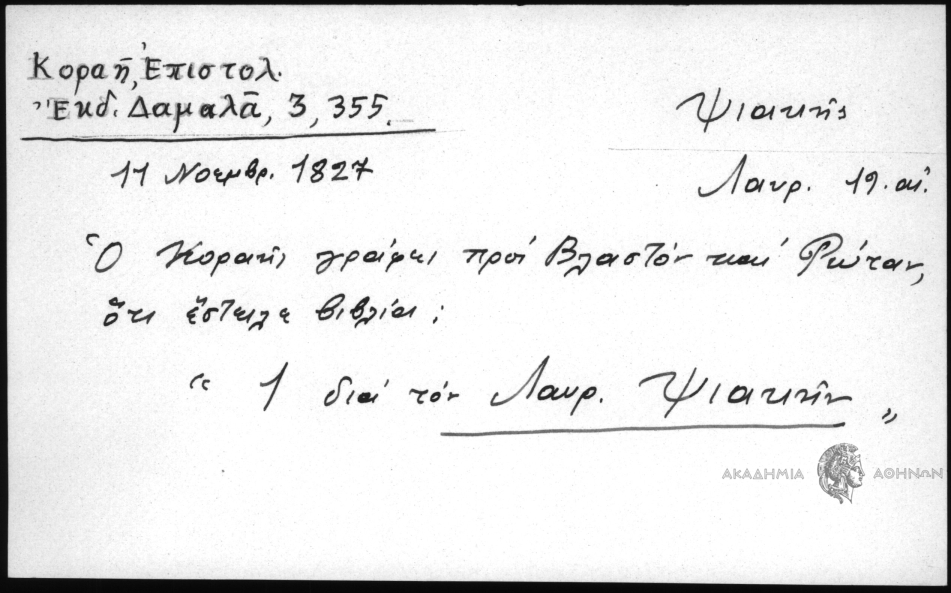 Κοραῆ, Ἐπιστολ.
Ἐκδ. Δαμαλᾶ, 3, 355.
Ψιακῆς
11 Νοεμβρ. 1827
Λαυρ. 19. αἰ.
Ὁ Κοραῆς γράφει πρὸς Βλαστὸν καὶ Ρώταν,
ὅτι ἔστειλε βιβλία:
“ 1 διὰ τὸν Λαυρ. Ψιακῆν „
ΑΚΑΔΗΜΙΑ ΑΘΗΝΩΝ